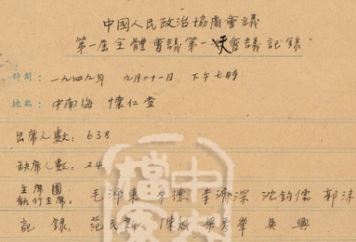 中國人民政治協商會議
第一屆全體會議第一天會議記錄
時間：一九四九年 九月二十一日 下午七時
地点：中南海 懷仁堂
出席人數：638
缺席人數：24
主席團
執行主席： 毛澤東 朱德 李濟深 沈鈞儒 郭沫
記錄：范民 陳 吳興